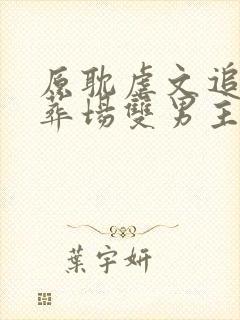 原耽虐文追
葬場雙男主
葉宇妍